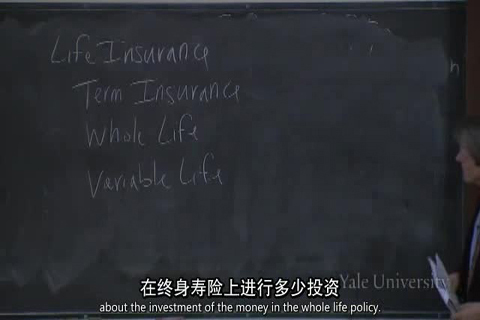 Life Insurance
Term Insurance
Whole Life
Variable Life
Yale University
在终身寿险上进行多少投资
about the investment of the money in the whole life policy.